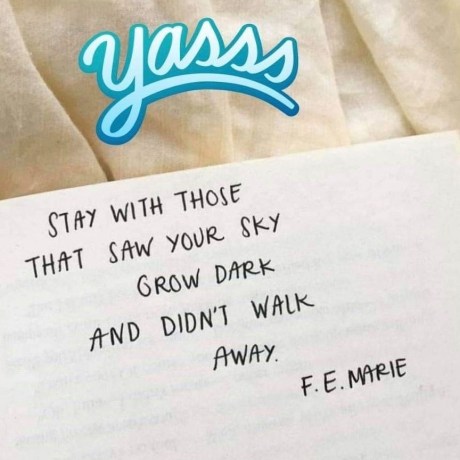 yasss
STAY WITH THOSE
THAT SAW YOUR SKY
GROW DARK
AND DIDN'T WALK
AWAY.
F.E. MARIE